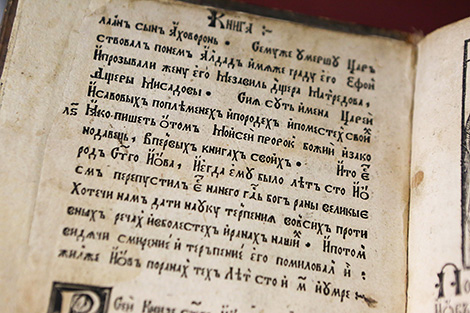 Книга :~
лаанъ сынъ Аховоронь • Семуже умершу Царъ
ствовал понем Алдадъ иимяже граду его Ефой
Ипрозывали жену его Мезавиль дщера Матредова,
Дщеры Мисадовы • Сия суть имена Царей
Исавовыхъ поплеменехъ ипородехъ ипоместех свой
Яко пишеть отом Моисей пророкъ божий изако
нодавець, Впервыхъ книгах своихъ • Ито е҃
род Ст҃го Иѡва, Иегда ему было лѣтъ сто Иѡ
см перепустилъ нанего богъ раны великые
Хотечи намъ дати науку терпения вовсихъ проти
вныхъ речах иеболестехъ иранах наши • Ипотом
видячи смирение и теръпение его помиловал и :
жилже Иѡвъ поранах тех лѣтъ сто и м҃ иумре :~
Сей Книзе